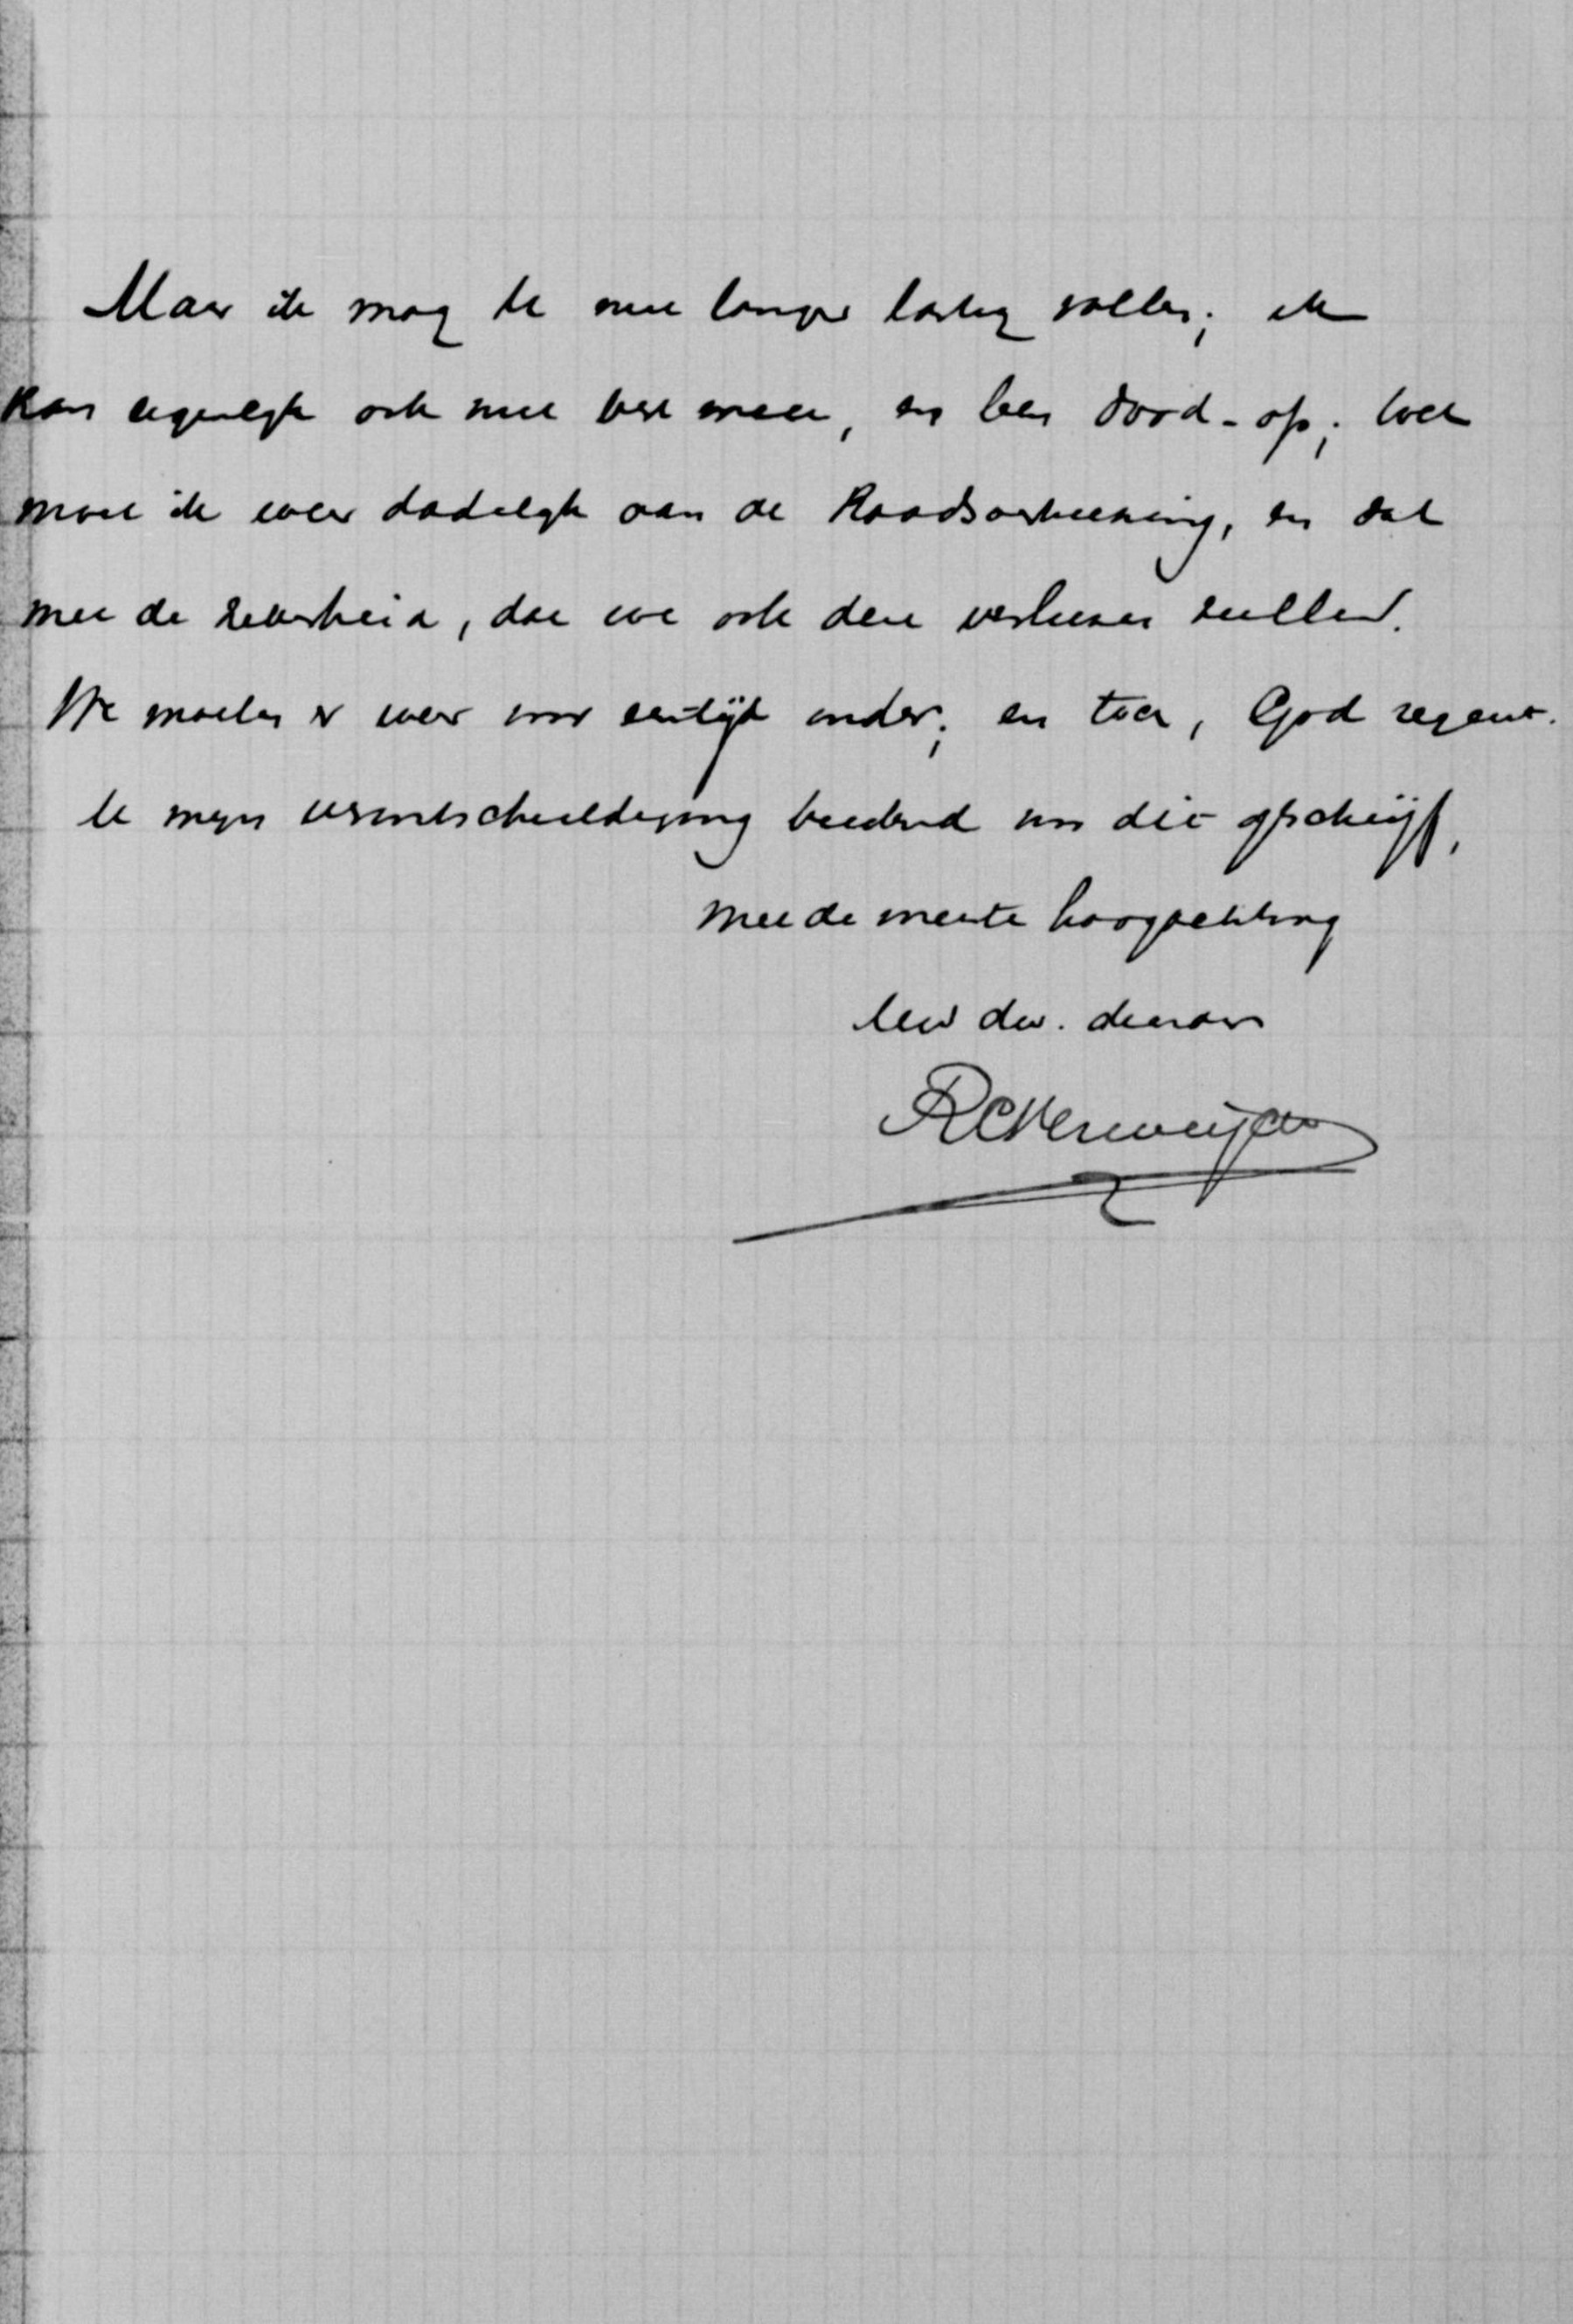 Maar ik mag U niet langer lastig vallen; ik
kan eigenlijk ook niet best meer, en ben dood-op; toch
moet ik weer dadelijk aan de Raadsverkiezing, en dat
met de zekerheid, dat we ook deze verliezen zullen.
We moeten er weer voor een tijd onder; en toch, God regeert.
U mijn verontschuldiging biedend voor dit geschrijf,
met de meeste hoogachting
Uw dw. dienaar
RCVerweijck